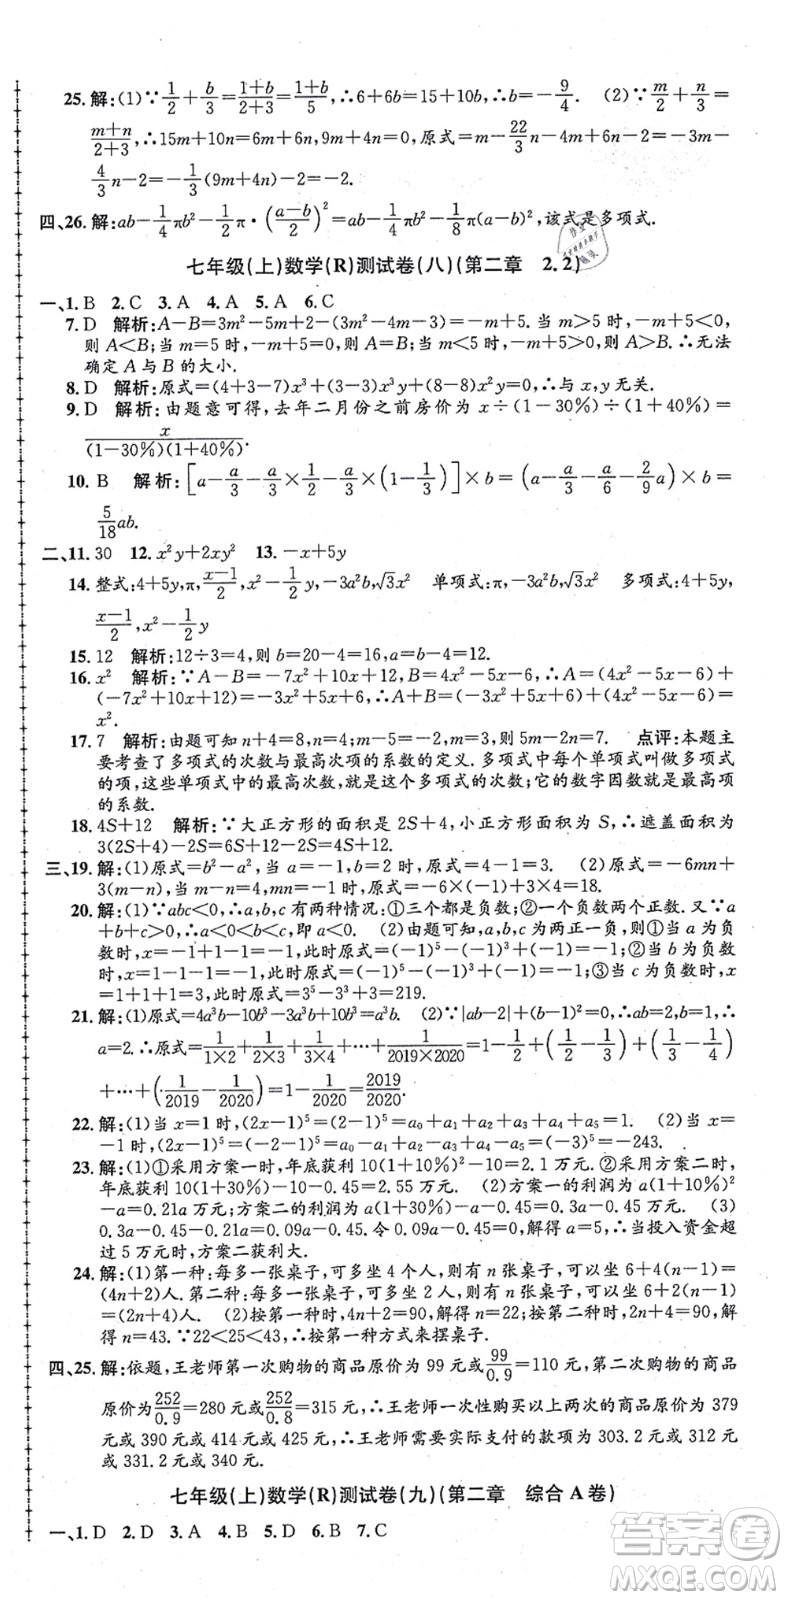 25. 解:(1)∵1/2+b/3=(1+b)/(2+3)=(1+b)/5,∴6+6b=15+10b,∴b=-9/4. (2)∵m/2+n/3=
(m+n)/(2+3),∴15m+10n=6m+6n,∴9m+4n=0,原式=m-22/3n-4m+6n-2=-3m-
4/3n-2=-1/3(9m+4n)-2=-2.
四、26. 解:ab-1/4πb²-1/2π·((a-b)/2)²=ab-1/4πb²-1/8π(a-b)²,该式是多项式.
七年级(上)数学(R)测试卷(八)(第二章 2.2)
一、1. B 2. C 3. A 4. A 5. A 6. C
7. D 解析:A-B=3m²-5m+2-(3m²-4m-3)=-m+5. 当 m>5 时,-m+5<0,
则 A<B;当 m=5 时,-m+5=0,则 A=B;当 m<5 时,-m+5>0,则 A>B. ∴无法
确定 A 与 B 的大小.
8. D 解析:原式=(4+3-7)x³+(3-3)x²y+(8-8)x²=0,与 x,y 无关.
9. D 解析:由题意可得,去年二月份之前房价为 x÷(1-30%)÷(1+40%)=
x/((1-30%)(1+40%)).
10. B 解析:[a-a/3-a/3×1/2-a/3×(1-1/3)]×b=(a-a/3-a/6-2/9a)×b=
5/18ab.
二、11. 30 12. x²y+2xy² 13. -x+5y
14. 整式:4+5y,π,(x-1)/2,x²-1/2y,-3a²b,√3x² 单项式:π,-3a²b,√3x² 多项式:4+5y,
(x-1)/2,x²-1/2y
15. 12 解析:12÷3=4,则 b=20-4=16,a=b-4=12.
16. x² 解析:∵A-B=-7x²+10x+12,B=4x²-5x-6,∴A+B=(4x²-5x-6)+
(-7x²+10x+12)+(4x²-5x-6)=-7x²+10x+12+4x²-5x-6+4x²-5x-6=
x².
17. 7 解析:由题可知 n+4=8,1+m=-4,∴m=-5,n=4,则 5m-2n=7. 点评:本题主
要考查了多项式的次数与最高次项的系数的定义. 多项式中每个单项式叫做多项式
的项,这些单项式中的最高次数,就是这个多项式的次数;它的数字因数就是这个项
的系数.
18. 4S+12 解析:∵大正方形的面积是 2S+4,小正方形面积为 S,∴遮盖面积为
3(2S+4)-2S=6S+12-2S=4S+12.
三、19. 解:(1)原式=b²-a²,当 a=-1,b=2 时,原式=4-1=3. (2)原式=-6mn+
3(m-n),当 m-n=4,mn=-1 时,原式=-6×(-1)+3×4=18.
20. 解:(1)∵abc<0,∴a,b,c 有两种情况:①三个都是负数;②一个负数两个正数. 又∵a
+b+c>0,∴a<0<b<c,即 a<0. (2)由题可知,a,b,c 为两正一负,则①当 a 为负
数时,x=-1+1+1-1-1=-1,此时原式=(-1)⁵-(-1)³+1=1;②当 b 为负数
时,x=1-1+1-1-1=-1,此时原式=(-1)⁵-(-1)³+1=1;③当 c 为负数时,x
=1+1+1=3,此时原式=3⁵-3³+3=219.
21. 解:(1)原式=4a³b-10b³-3a³b+10b³=a³b. (2)∵|ab-2|+(b-1)²=0,∴ab=2,b=1,∴
a=2. ∴原式=1/(1×2)+1/(2×3)+1/(3×4)+…+1/(2019×2020)=1-1/2+(1/2-1/3)+(1/3-1/4)
+…+(1/2019-1/2020)=1-1/2020=2019/2020.
22. 解:(1)当 x=1 时,(2x-1)⁵=(2-1)⁵=a₀+a₁+a₂+a₃+a₄+a₅=1. (2)当 x=
-1 时,(2x-1)⁵=(-2-1)⁵=a₀-a₁+a₂-a₃+a₄-a₅=(-3)⁵=-243.
23. 解:(1)①采用方案一时,年底获利 10(1+10%)-10+10×10%=2.1 万元.②采用方案二时,
年底获利 10(1+30%)-10-0.45=2.55 万元. (2)方案一的利润为 a(1+10%)²
-a=0.21a 万元,方案二的利润为 a(1+30%)-a-0.45=0.3a-0.45 万元. (3)
0.3a-0.45-0.21a=0.09a-0.45. 令 0.09a-0.45>0,解得 a>5. ∴当投入资金超
过 5 万元时,方案二获利大.
24. 解:(1)第一种:每多一张桌子,可多坐 4 个人,则有 n 张桌子,可坐 6+4(n-1)=
(4n+2)人. 第二种:每多一张桌子,可多坐 2 个人,则有 n 张桌子,可坐 6+2(n-1)
=(2n+4)人. (2)第一种:4n+2=90,解得 n=22. 第二种:2n+4=90,解得
n=43. ∵22<25<43,∴按第一种方式来摆桌子.
四、25. 解:依题,王老师第一次购物的商品原价为 99 元或99/0.9=110 元,第二次购物的商品
原价为252/0.9=280 元或252/0.8=315 元,∴王老师一次性购买以上两次的商品原价为 379
元或 390 元或 414 元或 425 元. ∴王老师需要实际支付的款数为 303.2 元或 312
元或 331.2 元或 340 元.
七年级(上)数学(R)测试卷(九)(第二章 综合 A 卷)
一、1. D 2. D 3. A 4. A 5. D 6. B 7. C
答案圈
MXQE.COM